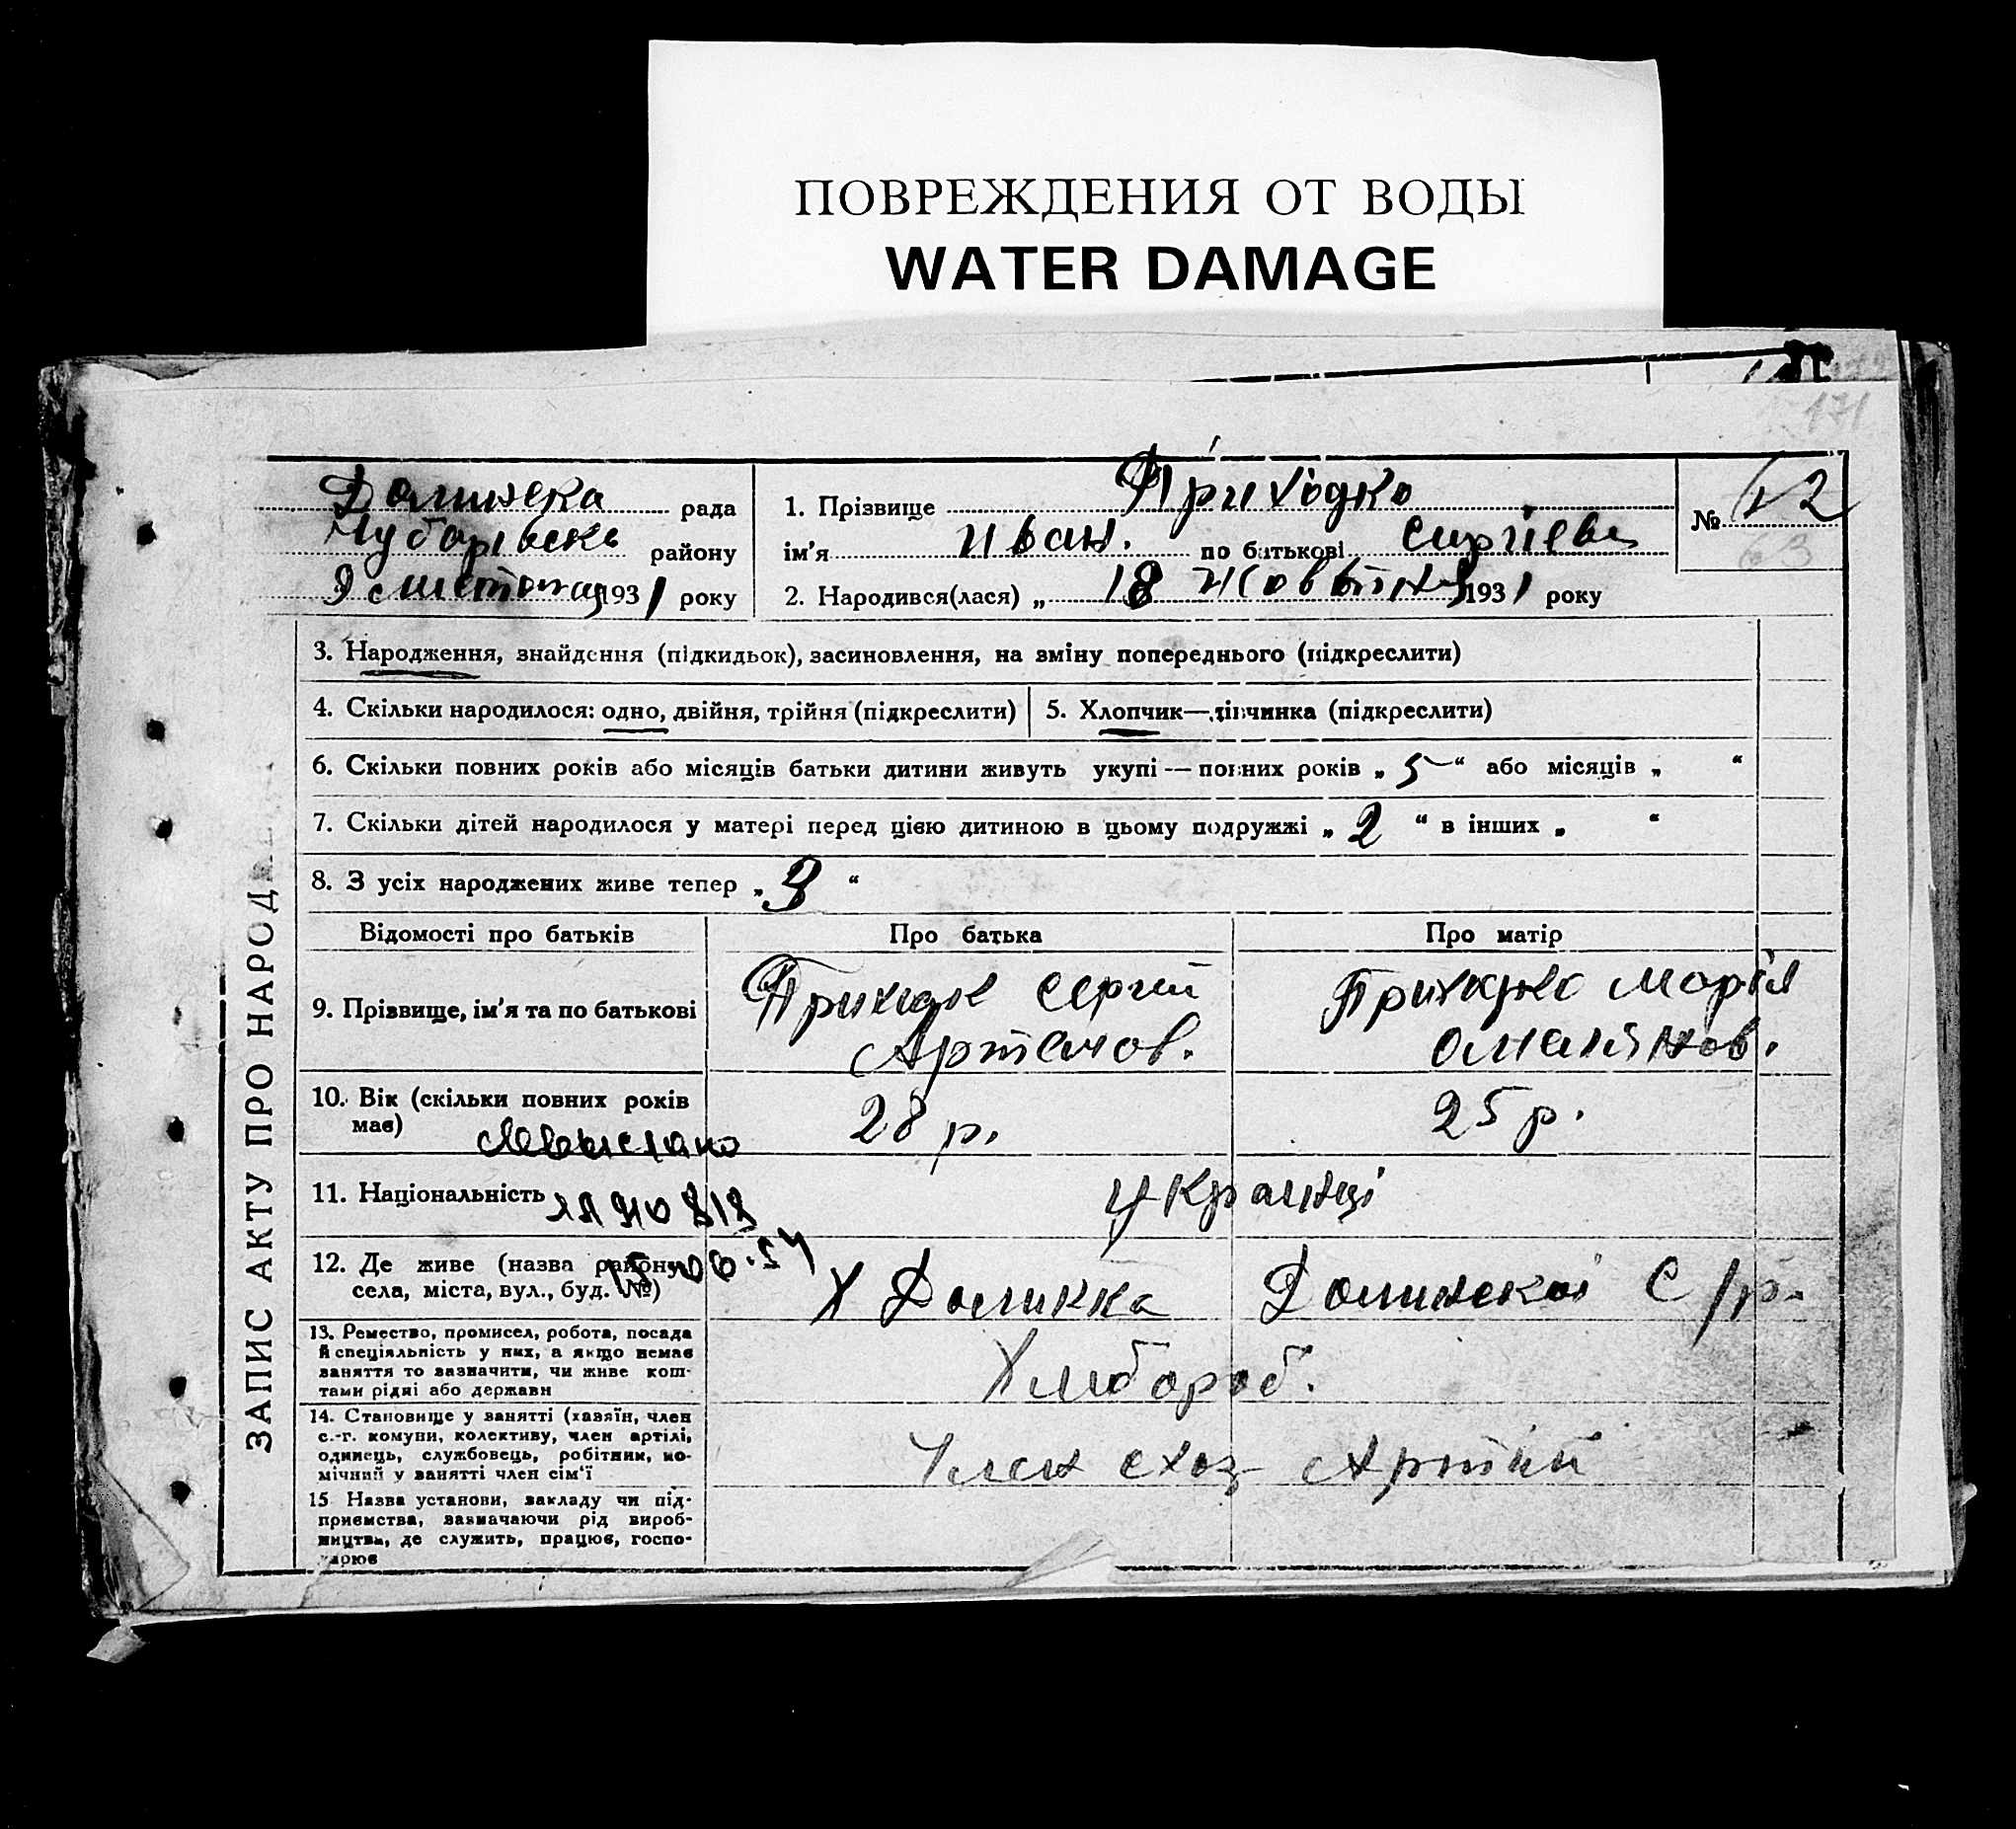 ПОВРЕЖДЕНИЯ ОТ ВОДЫ
WATER DAMAGE
171
Долинска рада
Чубарівськ району
9 листопад 1931 року
1. Прізвище Приходко
ім'я Иван. по батькові Сиргіев
2. Народився(лася) „ 18 жовтня 1931 року
№ 62
63
ЗАПИС АКТУ ПРО НАРОД
3. Народження, знайдення (підкидьок), засиновлення, на зміну попереднього (підкреслити)
4. Скільки народилося: одно, двійня, трійня (підкреслити)
5. Хлопчик—дівчинка (підкреслити)
6. Скільки повних років або місяців батьки дитини живуть укупі — повних років „ 5 “ або місяців „ “
7. Скільки дітей народилося у матері перед цією дитиною в цьому подружжі „ 2 “ в інших „ “
8. З усіх народжених живе тепер „ 3 “
Відомості про батьків
Про батька
Про матір
9. Прізвище, ім'я та по батькові
Приходк Сергій
Артемов.
Приходко Марія
Омелянов.
10. Вік (скільки повних років
має)
28 р.
25 р.
11. Національність
українці
12. Де живе (назва району,
села, міста, вул., буд. №)
Х Долинка Долинской С/р.
13. Ремество, промисел, робота, посада
й спеціяльність у них, а якщо немає
заняття то зазначити, чи живе кош-
тами рідні або держави
Хлібороб.
14. Становище у занятті (хазяїн, член
с.-г. комуни, колективу, член артілі,
одинець, службовець, робітник, по-
мічний у занятті член сім'ї
Член схоз Артілі
15 Назва установи, закладу чи під-
приємства, зазначаючи рід вироб-
ництва, де служить, працює, госпо-
дарює